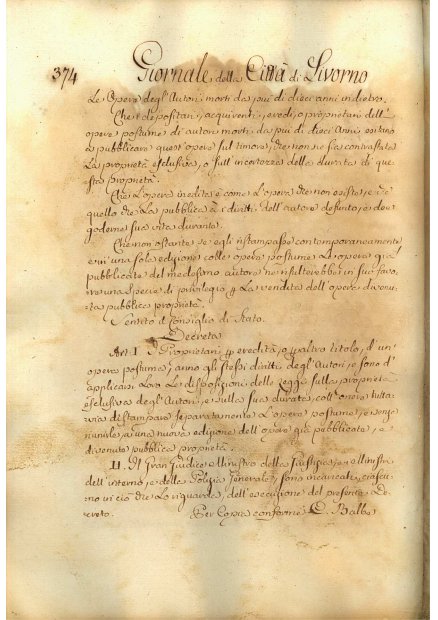 374 Giornale della Città di Livorno
Le Opere degl' Autori morti da più di dieci anni indietro.
Che i depositari, acquirenti, eredi, o proprietari dell'
opere postume di autori morti da più di dieci Anni, esitano
a pubblicare quest' opere sul timore, che non ne sia contrastata
La proprietà esclusiva, o sull' incertezza della durata di que-
sta proprietà.
Che L'opera inedita è come L'opera che non esiste, e
quello che La pubblica à i diritti dell' autore defunto, e deve
goderne sua vita durante.
Che non ostante se egli ristampasse contemporaneamente
e in una sola edizione colle opere postume Le opere già
pubblicate del medesimo autore ne risulterebbe in suo favo-
re una specie di privilegio p La vendita dell' opere divenu-
ta pubblica proprietà.
Sentito il Consiglio di Stato.
Decreta
Art. I. I Proprietari p eredità, o p altro titolo, d'un'
opera postuma, anno gli stessi diritti degl' Autori, e sono d'
applicarsi Loro Le disposizioni delle Leggi sulla proprietà
esclusiva degl' Autori, e sulla sua durata, coll' onere tutta-
via di stampare separatamente L'opere postume, e senza
unirle, a una nuova edizione dell' opere già pubblicate, e
divenute pubblica proprietà.
II. Il Gran Giudice e Ministro della Giustizia, e i Ministri
dell' interno, e della Polizia Generale, sono incaricati, ciascu-
no in ciò che Lo riguarda, dell' esecuzione del presente De-
creto. Per Copia conforme Balbo